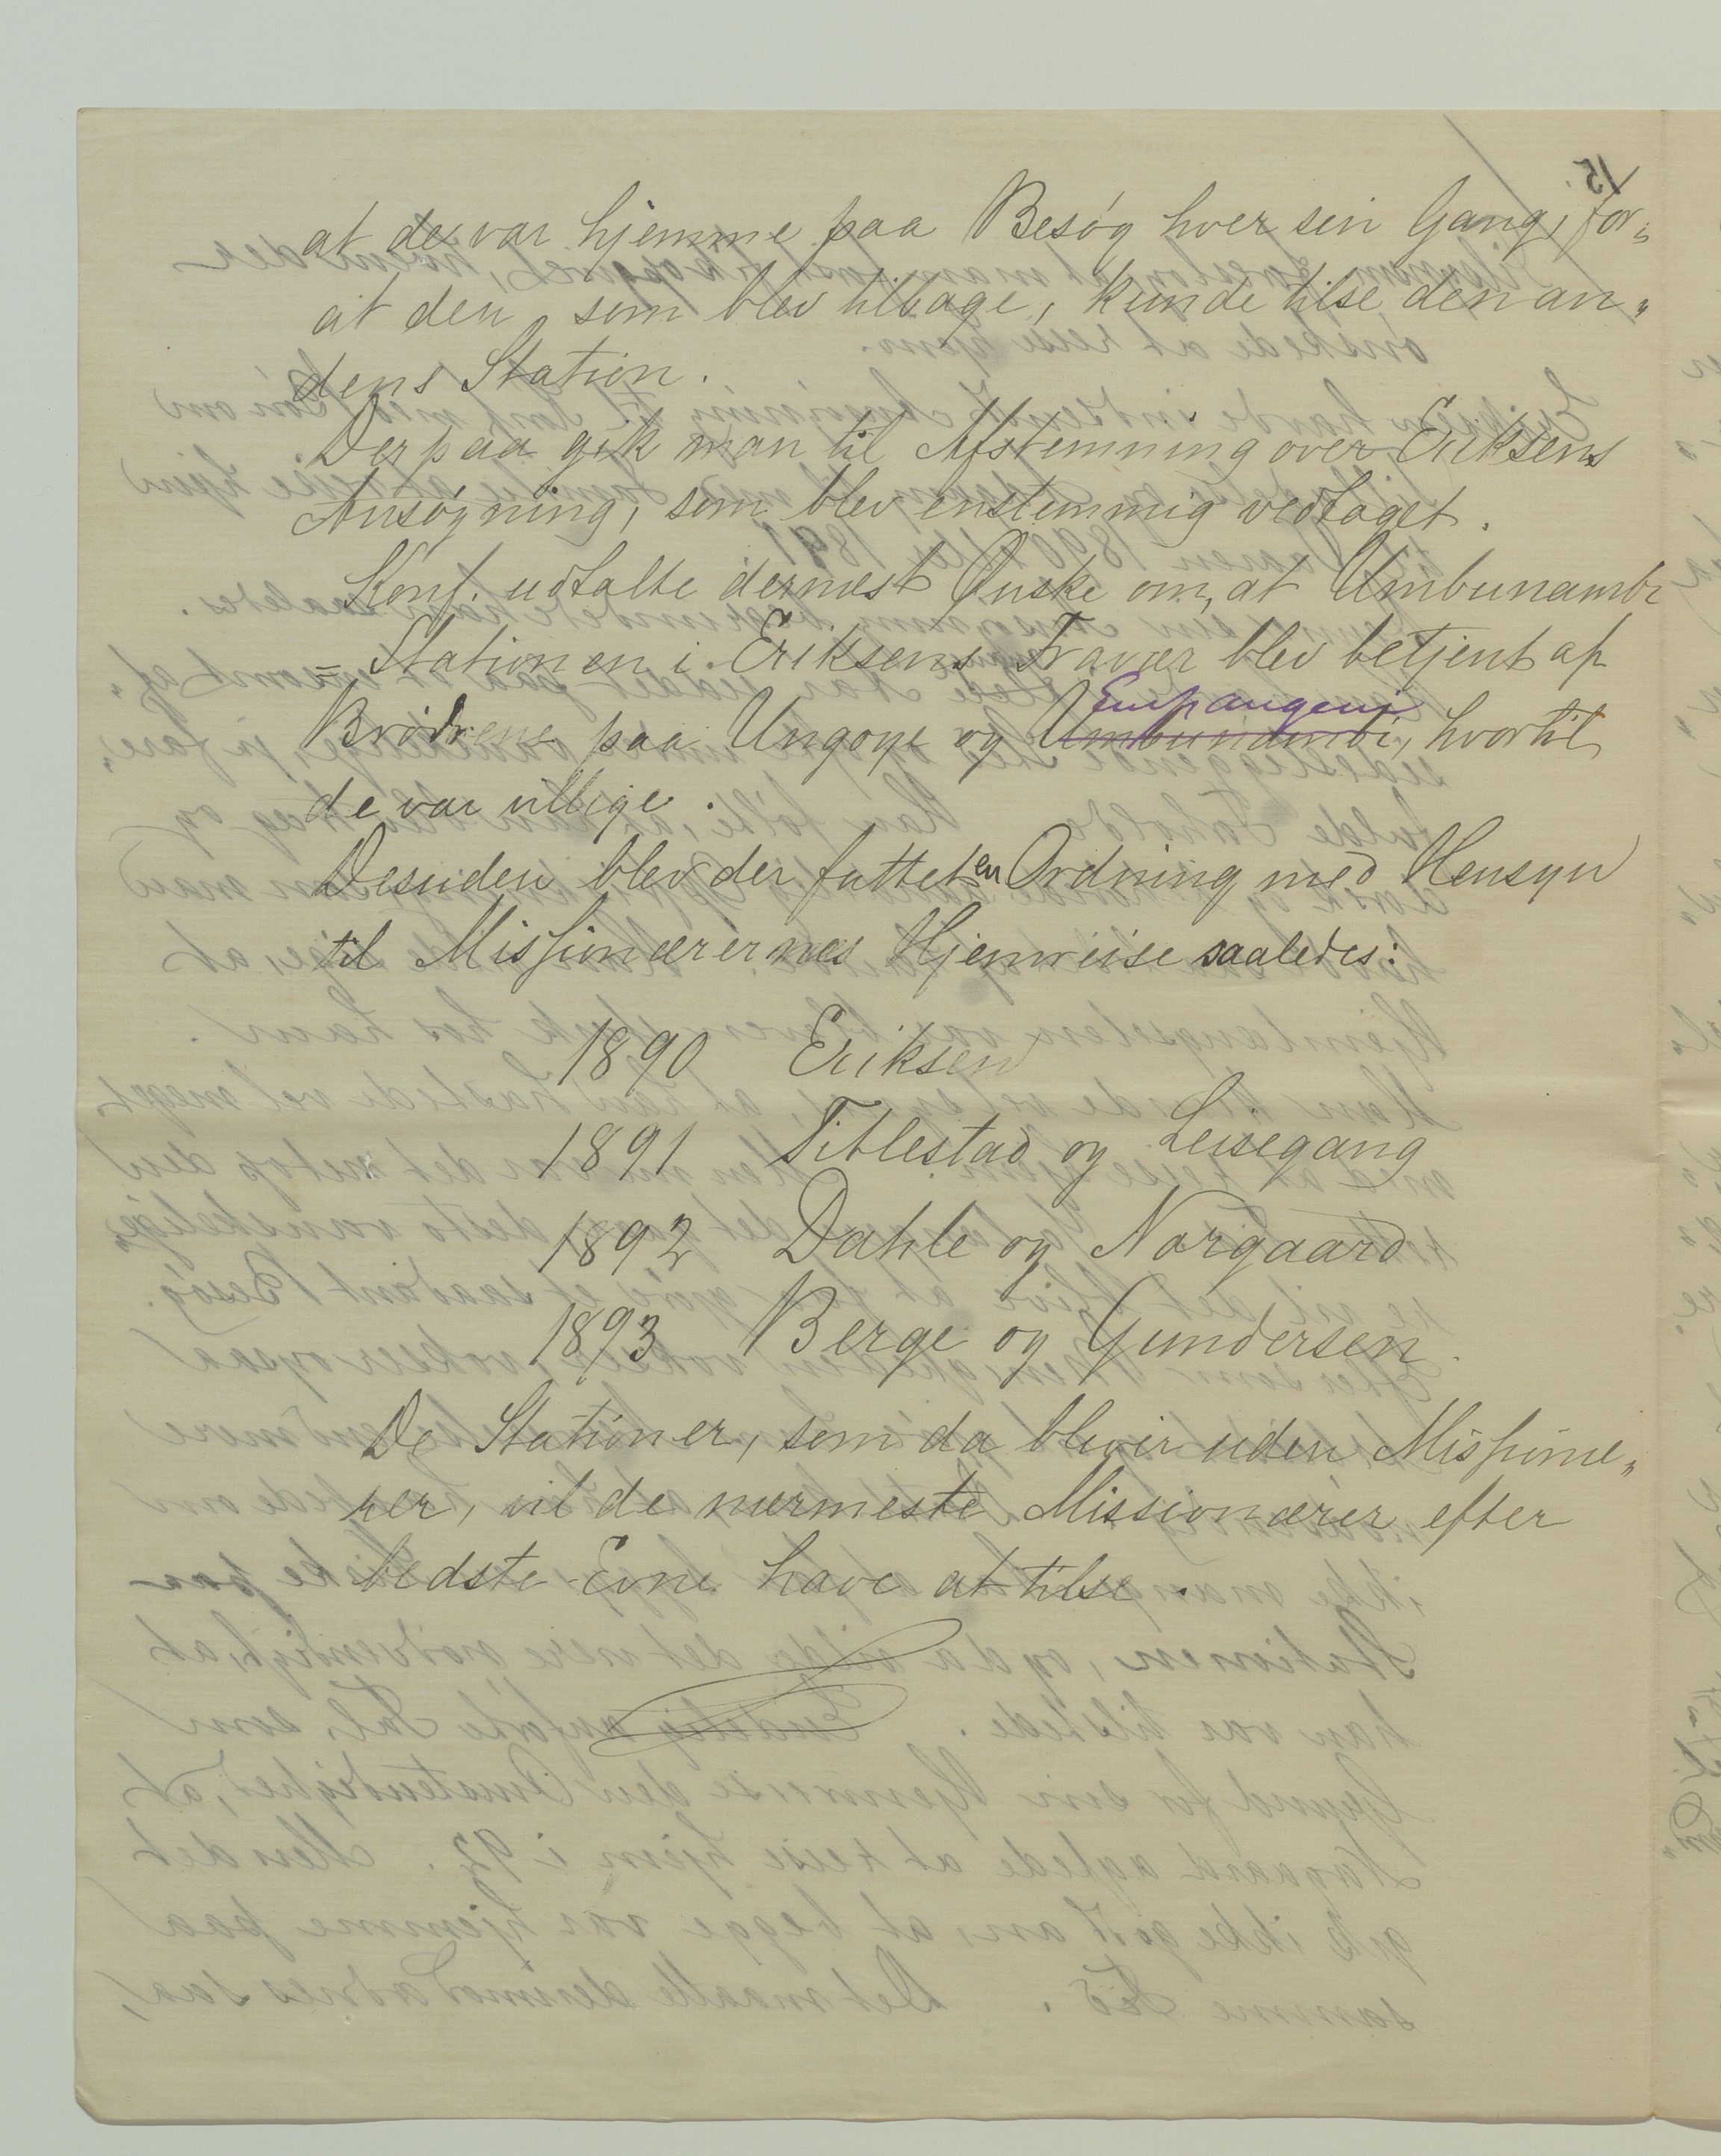 at de var hjemme paa Besøg hver sin Gang, for=
at den, som blev tilbage, kunde tilse den an„
dens Station.
Derpaa gik man til Afstemning over Eriksens
Ansøgning, som blev enstemmig vedtaget.
Konf. udtalte dernæst Ønske om, at Umbunambi
= Stationen i Eriksens Fravær blev betjent af
Empangeni
Brødrene paa Ungoye og Umbunambi, hvortil
de var villige.
Desuden blev der fattet en Ordning med Hensyn
til Missionærernes Hjemreise saaledes:
1890 Eriksen
1891 Titlestad og Leisegang
1892 Dahle og Norgaard
1893 Berge og Gundersen.
De Stationer, som da bliver uden Missionæ„
rer, vil de nærmeste Missionærer efter
bedste Evne have at tilse.